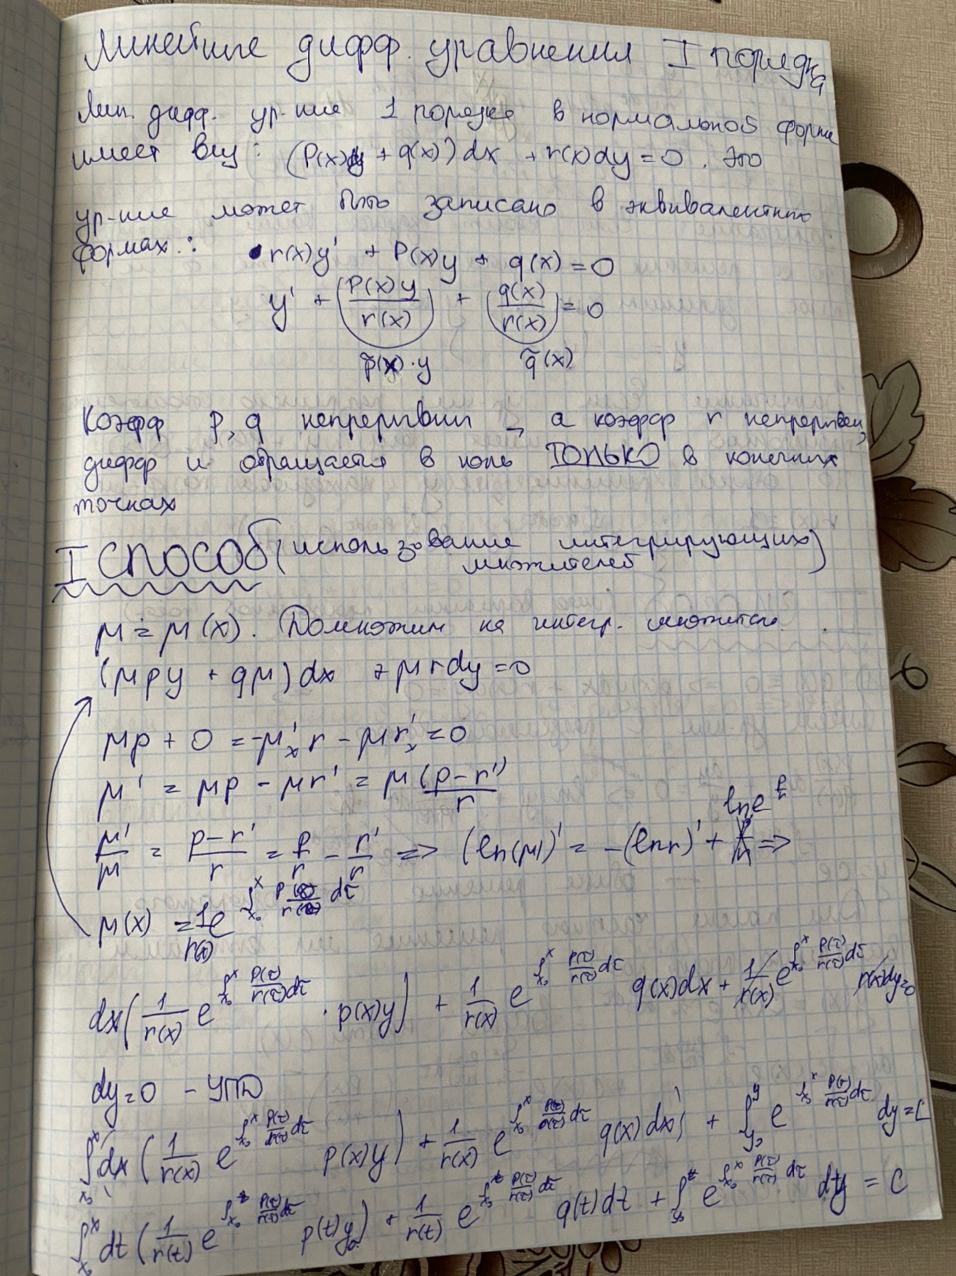 Линейные дифф. уравнения I порядка
Лин. дифф. ур-ние 1 порядка в нормальной форме
имеет вид: (P(x)y + q(x))dx + r(x)dy = 0. Это
ур-ние может быть записано в эквивалентных
формах: • r(x)y' + P(x)y + q(x) = 0
y' + (P(x)y / r(x)) + (q(x) / r(x)) = 0
p̃(x)·y q̃(x)
Коэфф p, q непрерывны, а коэфф r непрерывен,
дифф и обращается в ноль ТОЛЬКО в конечных
точках
I СПОСОБ (использование интегрирующих
множителей)
μ = μ(x). Домножим на интегр. множитель.
(μpy + qμ)dx + μrdy = 0
μp + 0 = -μ'ₓr - μr'ₓ = 0
μ' = μp - μr' = μ(p-r')/r
μ'/μ = (p-r')/r = p/r - r'/r => (ln(μ))' = -(lnr)' + ln e^(p/r) =>
μ(x) = 1/r(x) e^(∫ₓ₀ˣ p(τ)/r(τ) dτ)
dx(1/r(x) e^(∫ₓ₀ˣ p(τ)/r(τ) dτ) · p(x)y) + 1/r(x) e^(∫ₓ₀ˣ p(τ)/r(τ) dτ) q(x)dx + 1/r(x) e^(∫ₓ₀ˣ p(τ)/r(τ) dτ) r(x)dy=0
dy=0 - УПД
∫ₓ₀ˣ dx (1/r(x) e^(∫ₓ₀ˣ p(τ)/r(τ) dτ) p(x)y) + 1/r(x) e^(∫ₓ₀ˣ p(τ)/r(τ) dτ) q(x)dx) + ∫y₀ʸ e^(∫ₓ₀ˣ p(τ)/r(τ) dτ) dy = C
∫ₓ₀ˣ dt (1/r(t) e^(∫ₓ₀ᵗ p(τ)/r(τ) dτ) p(t)y₀) + 1/r(t) e^(∫ₓ₀ᵗ p(τ)/r(τ) dτ) q(t)dt + ∫y₀ᵗ e^(∫ₓ₀ˣ p(τ)/r(τ) dτ) dy = C